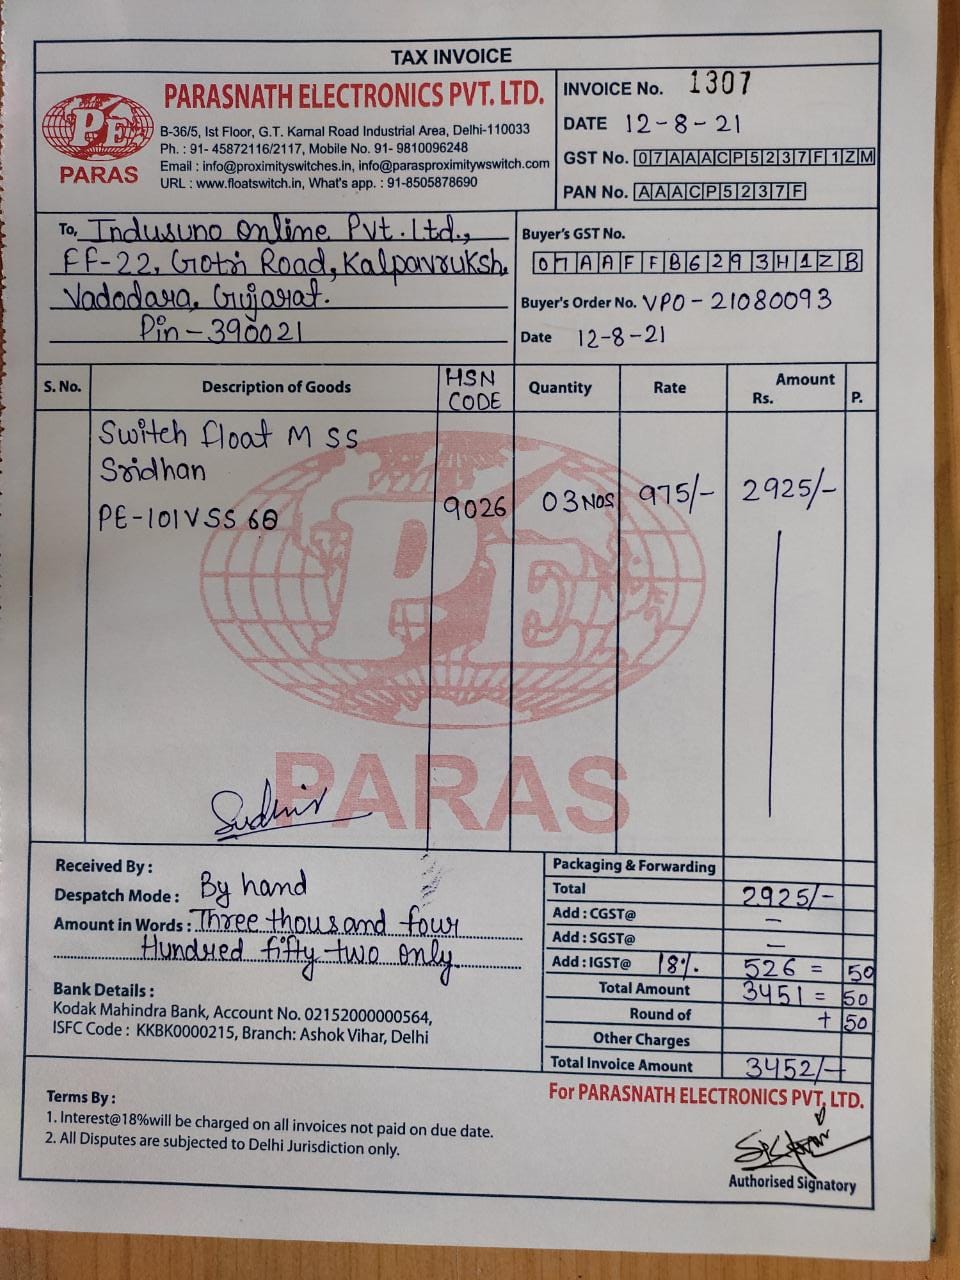 TAX INVOICE
PE
PARAS
PARASNATH ELECTRONICS PVT. LTD.
B-36/5, Ist Floor, G.T. Karnal Road Industrial Area, Delhi-110033
Ph. : 91- 45872116/2117, Mobile No. 91- 9810096248
Email : info@proximityswitches.in, info@parasproximitywswitch.com
URL : www.floatswitch.in, What's app. : 91-8505878690
INVOICE No. 1307
DATE 12-8-21
GST No. 07AAACP5237F1ZM
PAN No. AAACP5237F
To, Indusuno Online Pvt. Ltd.,
FF-22, Gotri Road, Kalpavruksh,
Vadodara, Gujarat.
Pin-390021
Buyer's GST No.
07AAFFB6293H1ZB
Buyer's Order No. VPO-21080093
Date 12-8-21
S. No. Description of Goods HSN CODE Quantity Rate Amount Rs. P.
Switch float M SS
Sridhan
PE-101VSS 60 9026 03 Nos 975/- 2925/-
PE
PARAS
Sudhir
Received By :
Despatch Mode : By hand
Amount in Words : Three thousand four
Hundred fifty two only
Bank Details :
Kodak Mahindra Bank, Account No. 02152000000564,
ISFC Code : KKBK0000215, Branch: Ashok Vihar, Delhi
Packaging & Forwarding
Total 2925/-
Add : CGST@ –
Add : SGST@ –
Add : IGST@ 18% 526 = 50
Total Amount 3451 = 50
Round of + 50
Other Charges
Total Invoice Amount 3452/-
For PARASNATH ELECTRONICS PVT. LTD.
Terms By :
1. Interest@18%will be charged on all invoices not paid on due date.
2. All Disputes are subjected to Delhi Jurisdiction only.
Authorised Signatory